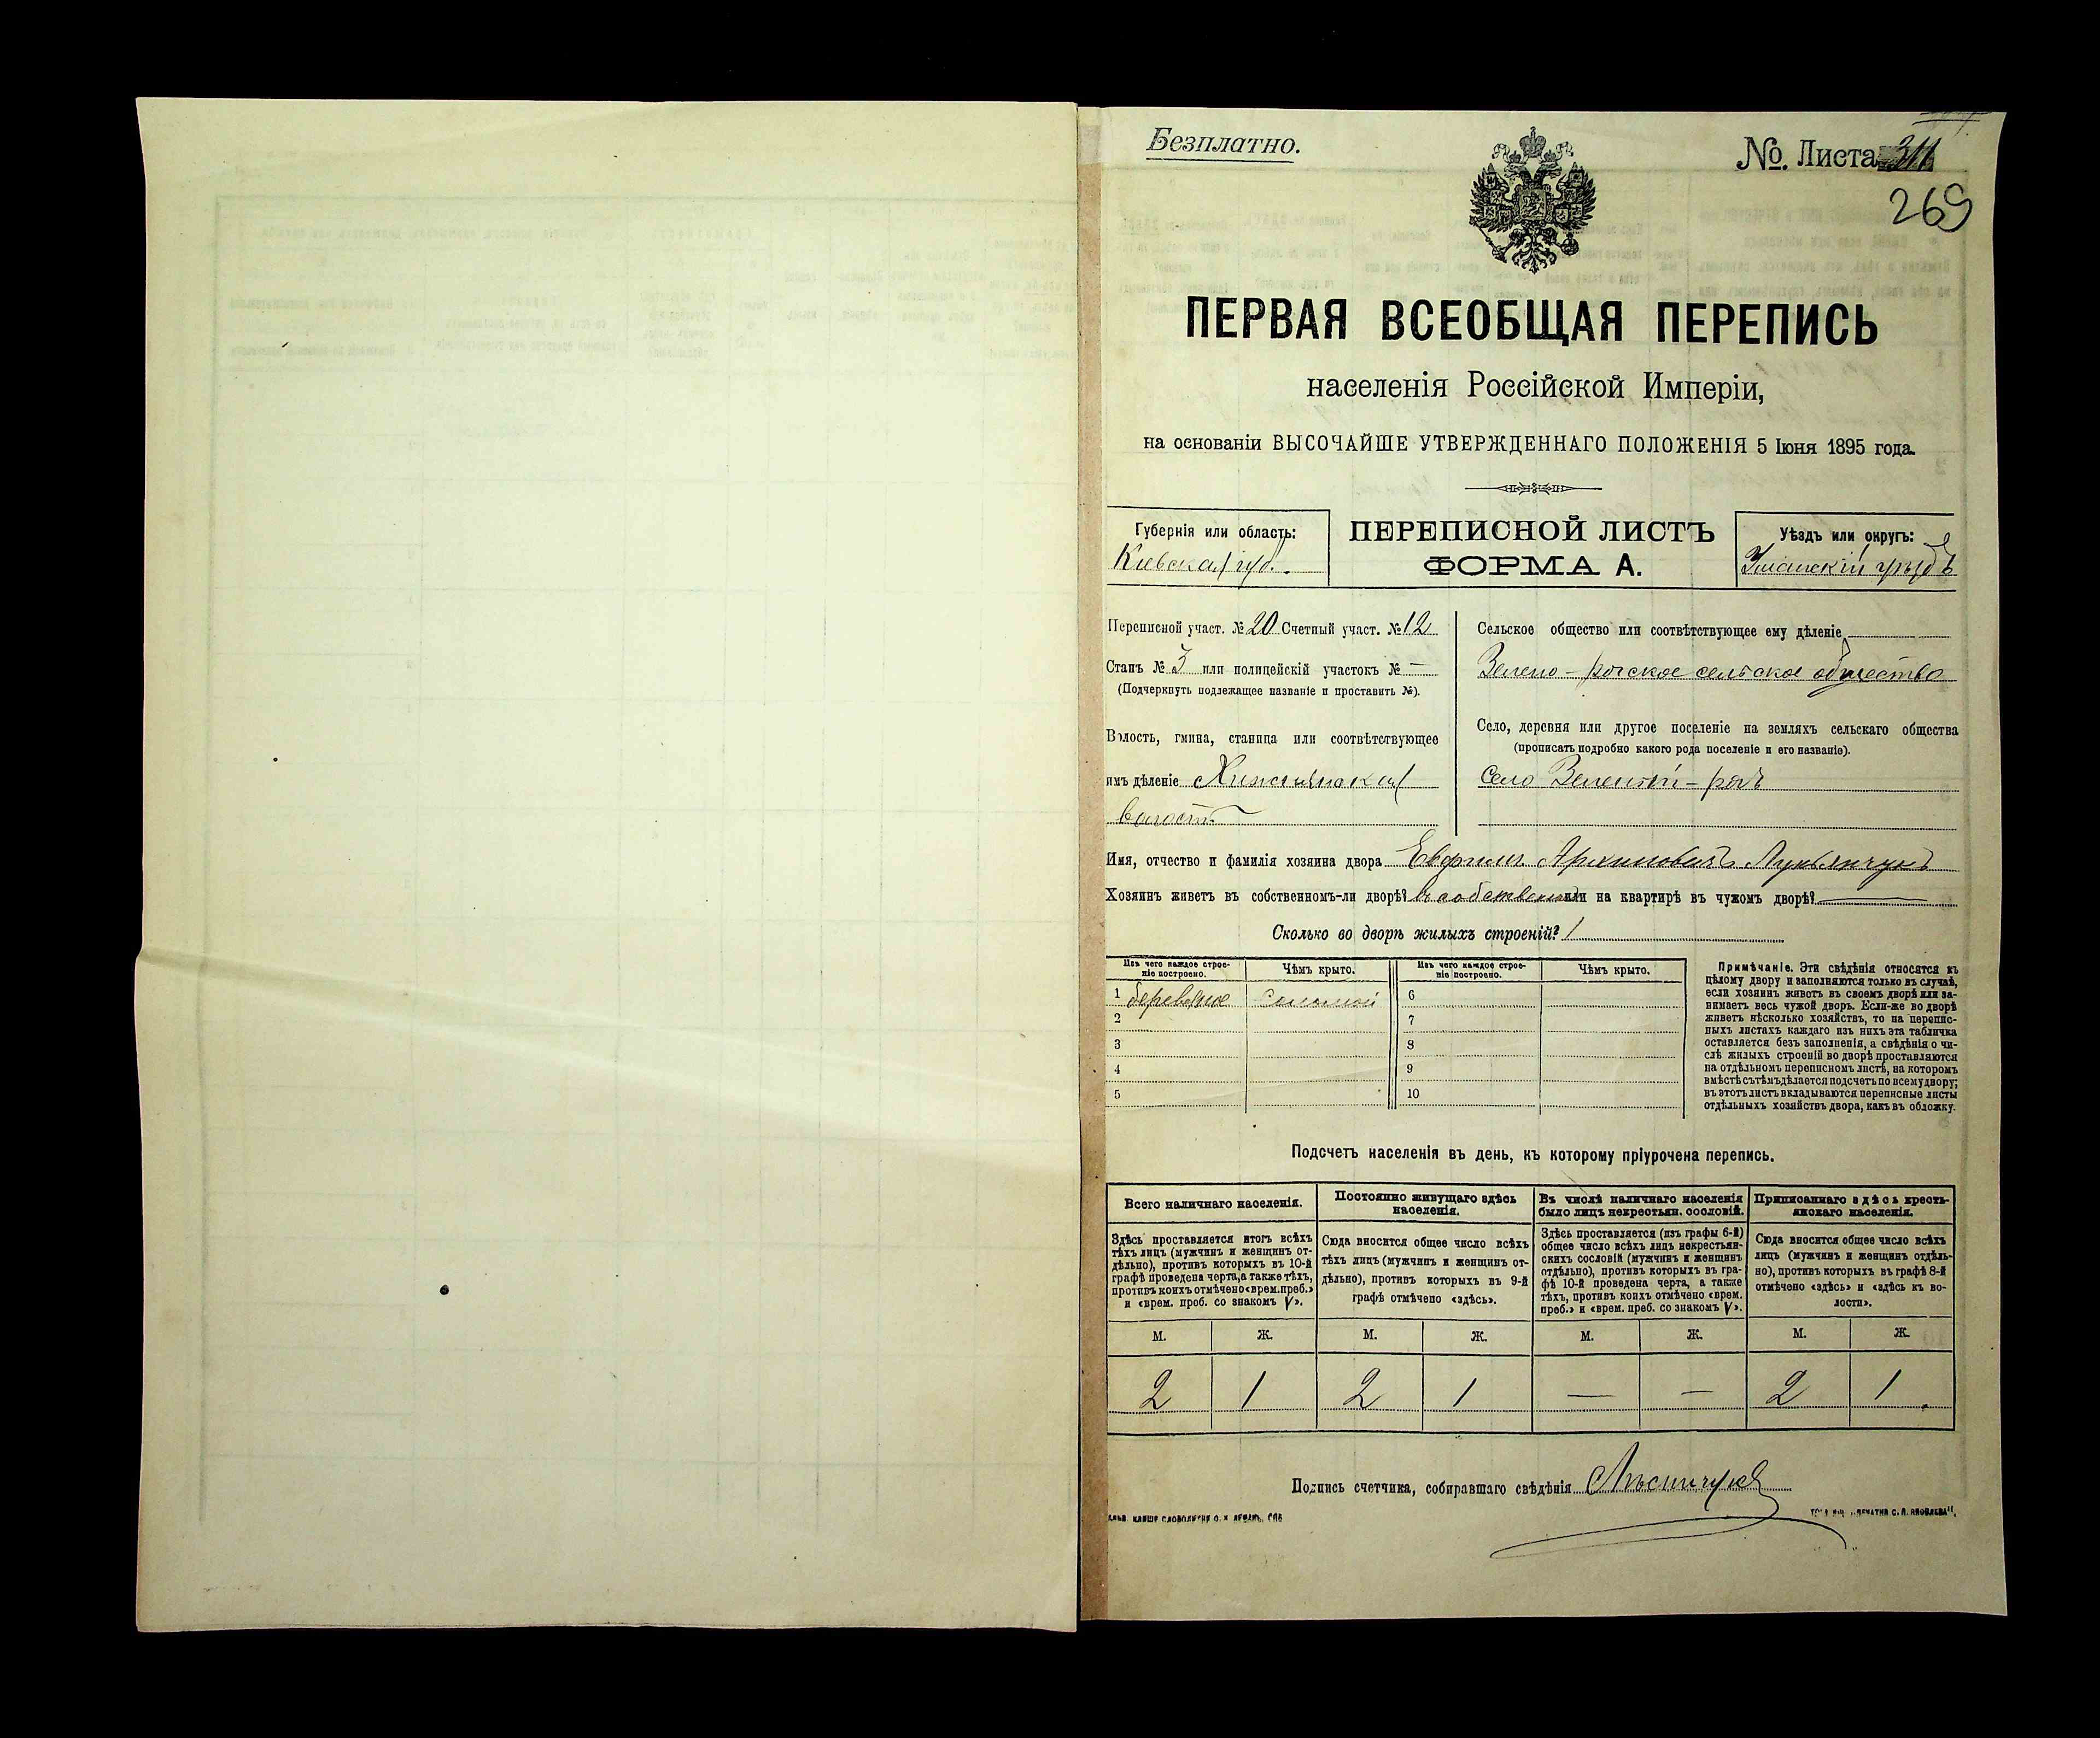 Безплатно.
№. Листа 311
269
ПЕРВАЯ ВСЕОБЩАЯ ПЕРЕПИСЬ
населенія Россійской Имперіи,
на основаніи ВЫСОЧАЙШЕ УТВЕРЖДЕННАГО ПОЛОЖЕНІЯ 5 Іюня 1895 года.
Губернія или область:
Кіевская губ.
ПЕРЕПИСНОЙ ЛИСТЪ
ФОРМА А.
Уѣздъ или округъ:
Уманскій уѣздъ
Переписной участ. № 20 Счетный участ. № 12
Станъ № 3 или полицейскій участокъ № —
(Подчеркнуть подлежащее названіе и проставить №).
Волость, гмина, станица или соотвѣтствующее
имъ дѣленіе
волость
Сельское общество или соотвѣтствующее ему дѣленіе
Зелено-рогское сельское общество
Село, деревня или другое поселеніе на земляхъ сельскаго общества
(прописать подробно какого рода поселеніе и его названіе).
Село Зеленый-рогъ
Имя, отчество и фамилія хозяина двора Евфимъ Архиповичъ Лукьянчукъ
Хозяинъ живетъ въ собственномъ-ли дворѣ? въ собственномъ или на квартирѣ въ чужомъ дворѣ? —
Сколько во дворѣ жилыхъ строеній? 1
Изъ чего каждое строе-
ніе построено.
Чѣмъ крыто.
Изъ чего каждое строе-
ніе построено.
Чѣмъ крыто.
1 деревяное соломой 6
2 7
3 8
4 9
5 10
Примѣчаніе. Эти свѣдѣнія относятся къ
цѣлому двору и заполняются только въ случаѣ,
если хозяинъ живетъ въ своемъ дворѣ или за-
нимаетъ весь чужой дворъ. Если-же во дворѣ
живетъ нѣсколько хозяйствъ, то на перепис-
ныхъ листахъ каждаго изъ нихъ эта табличка
оставляется безъ заполненія, а свѣдѣнія о чи-
слѣ жилыхъ строеній во дворѣ проставляются
на отдѣльномъ переписномъ листѣ, на которомъ
вмѣстѣ съ тѣмъ дѣлается подсчетъ по всему двору;
въ этотъ листъ вкладываются переписные листы
отдѣльныхъ хозяйствъ двора, какъ въ обложку.
Подсчетъ населенія въ день, къ которому пріурочена перепись.
Всего наличнаго населенія.
Здѣсь проставляется итогъ всѣхъ
тѣхъ лицъ (мужчинъ и женщинъ от-
дѣльно), противъ которыхъ въ 10-й
графѣ проведена черта, а также тѣхъ,
противъ коихъ отмѣчено «врем. преб.»
и «врем. преб. со знакомъ V».
Постоянно живущаго здѣсь
населенія.
Сюда вносится общее число всѣхъ
тѣхъ лицъ (мужчинъ и женщинъ от-
дѣльно), противъ которыхъ въ 9-й
графѣ отмѣчено «здѣсь».
Въ числѣ наличнаго населенія
было лицъ некрестьян. сословій.
Здѣсь проставляется (изъ графы 6-й)
общее число всѣхъ лицъ некрестьян-
скихъ сословій (мужчинъ и женщинъ
отдѣльно), противъ которыхъ въ гра-
фѣ 10-й проведена черта, а также
тѣхъ, противъ коихъ отмѣчено «врем.
преб.» и «врем. преб. со знакомъ V».
Приписаннаго здѣсь кресть-
янскаго населенія.
Сюда вносится общее число всѣхъ
лицъ (мужчинъ и женщинъ отдѣль-
но), противъ которыхъ въ графѣ 8-й
отмѣчено «здѣсь» и «здѣсь къ во-
лости».
М. Ж. М. Ж. М. Ж. М. Ж.
2 1 2 1 — — 2 1
Подпись счетчика, собиравшаго свѣдѣнія